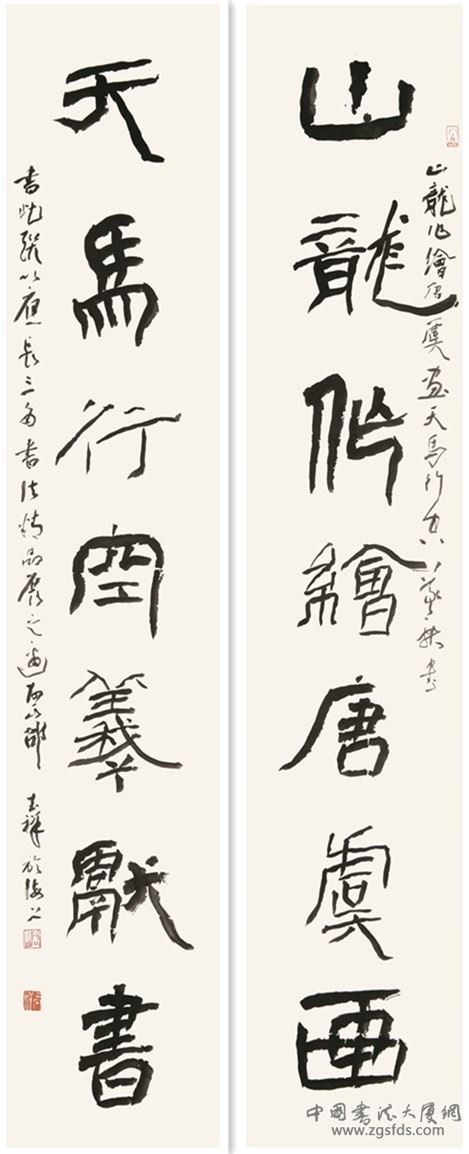 山龍作繪唐虞画
山龍作繪唐虞画天馬行空羲獻書
天馬行空羲獻書
書此聯以應長三角書法精品展之邀 於海上
中國書法大厦網
www.zgsfds.com